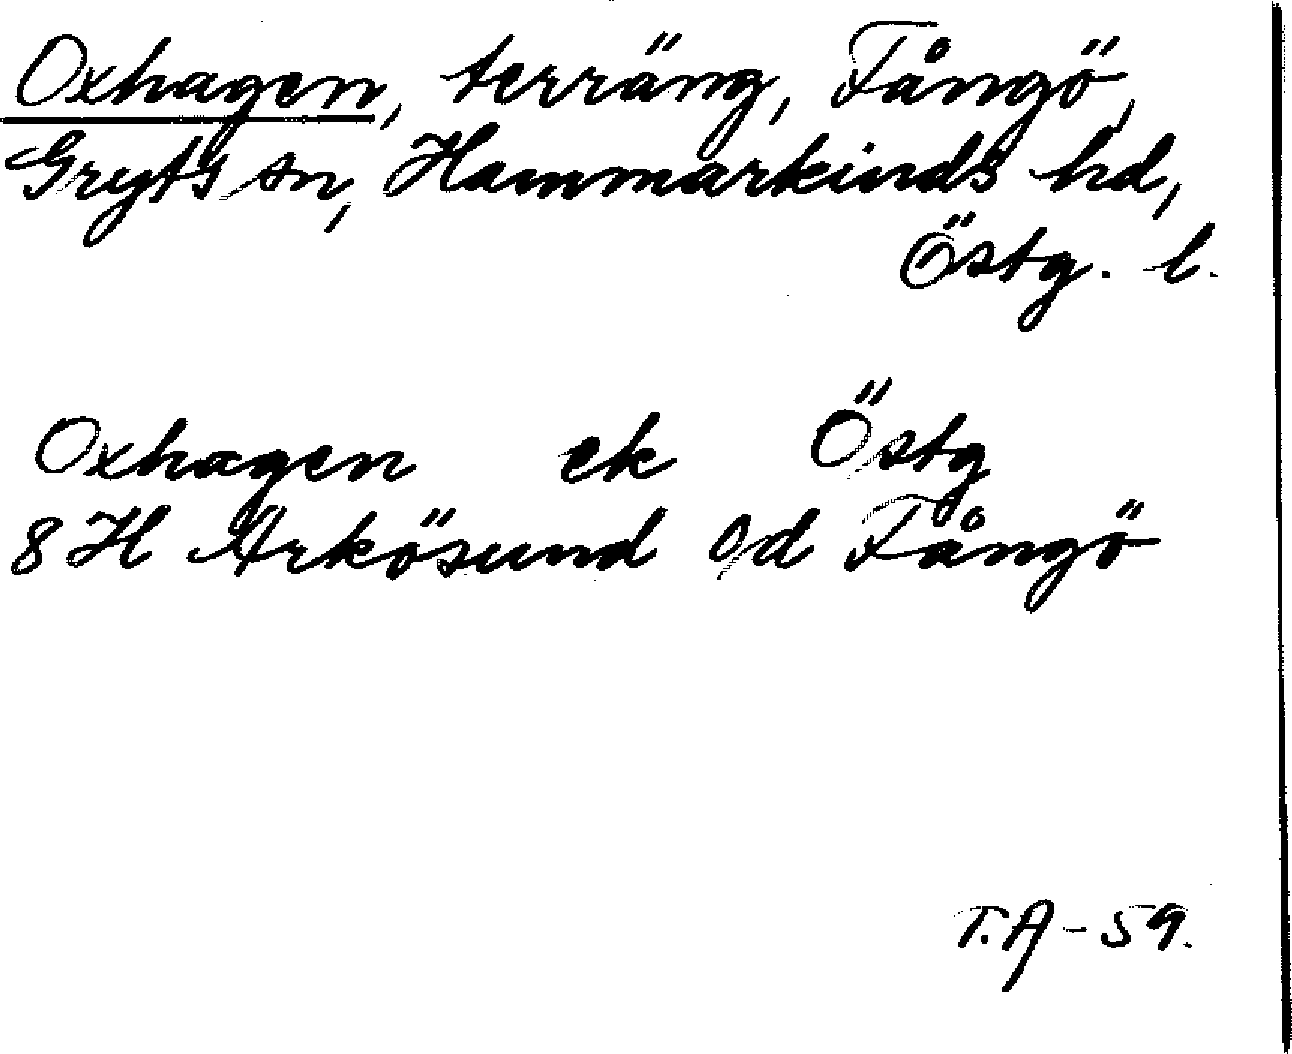 Oxhagen, terräng, Fångö,
Gryts sn, Hammarkinds hd,
Östg. l.
Oxhagen ek Östg
8H Arkösund 0d Fångö
T.A-59.